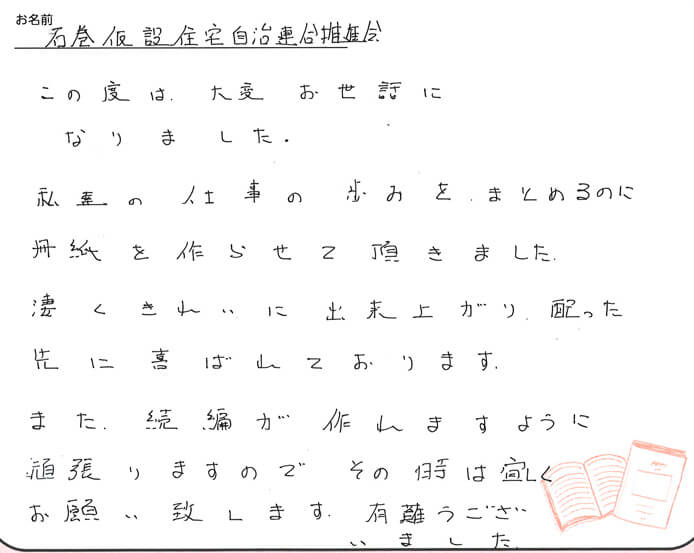 お名前
石巻仮設住宅自治連合推進会
この度は、大変お世話に
なりました。
私達の仕事の歩みを、まとめるのに
冊紙を作らせて頂きました。
凄くきれいに出来上がり、配った
先に喜ばれております。
また、続編が作れますように
頑張りますのでその時は宜しく
お願い致します。有難うござ
いました。